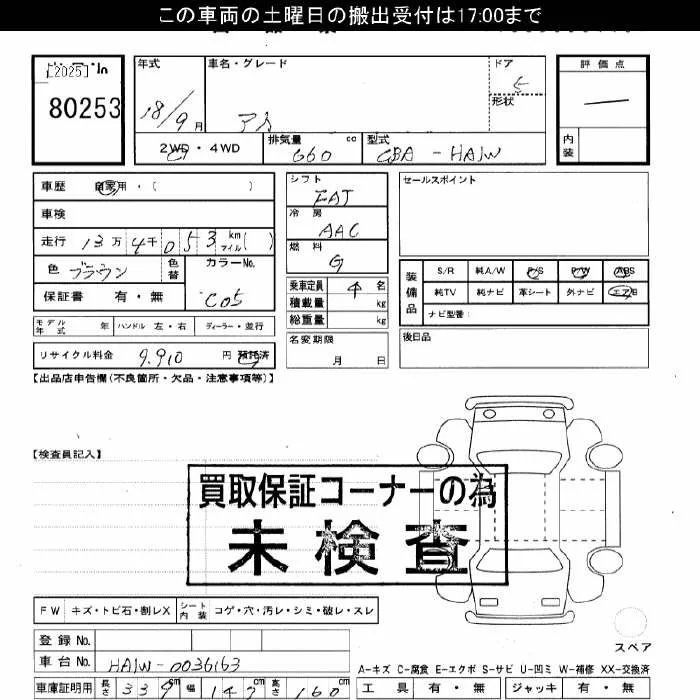 この車両の土曜日の搬出受付は17:00まで
[2025]
80253
年式
18/9 月
車名・グレード
ドア
5
形状
評価点
内装
2WD・4WD
排気量 660 cc
型式 CBA - HA1W
車歴 自家用・( )
車検
走行 13万 4千 053 km マイル ( )
色 ブラウン 色替
カラーNo. C05
保証書 有・無
モデル年式 年 ハンドル 左・右 ディーラー・並行
リサイクル料金 9.910 円 預託済
シフト FAT
冷房 AAC
燃料 G
乗車定員 4 名
積載量 kg
総重量 kg
名変期限 月 日
セールスポイント
装備品
S/R 純A/W P/S P/W ABS
純TV 純ナビ 革シート 外ナビ エアB
ナビ型番:
後日品
【出品店申告欄(不良箇所・欠品・注意事項等)】
【検査員記入】
買取保証コーナーの為
未検査
FW キズ・トビ石・割レX シート内装 コゲ・穴・汚レ・シミ・破レ・スレ
登録No.
車台No. HA1W-0036163
車庫証明用 長さ 339 cm 幅 147 cm 高さ 160 cm
スペア
A-キズ C-腐食 E-エクボ S-サビ U-凹ミ W-補修 XX-交換済
工具 有・無 ジャッキ 有・無